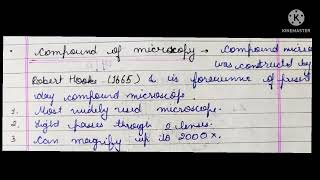 KINEMASTER
Compound of microscopy → Compound micros
was constructed by
Robert Hooke (1665) & is forerunner of present
day compound microscope
1. Most widely used microscope.
2. Light passes through 2 lenses.
3. Can magnify up to 2000x.